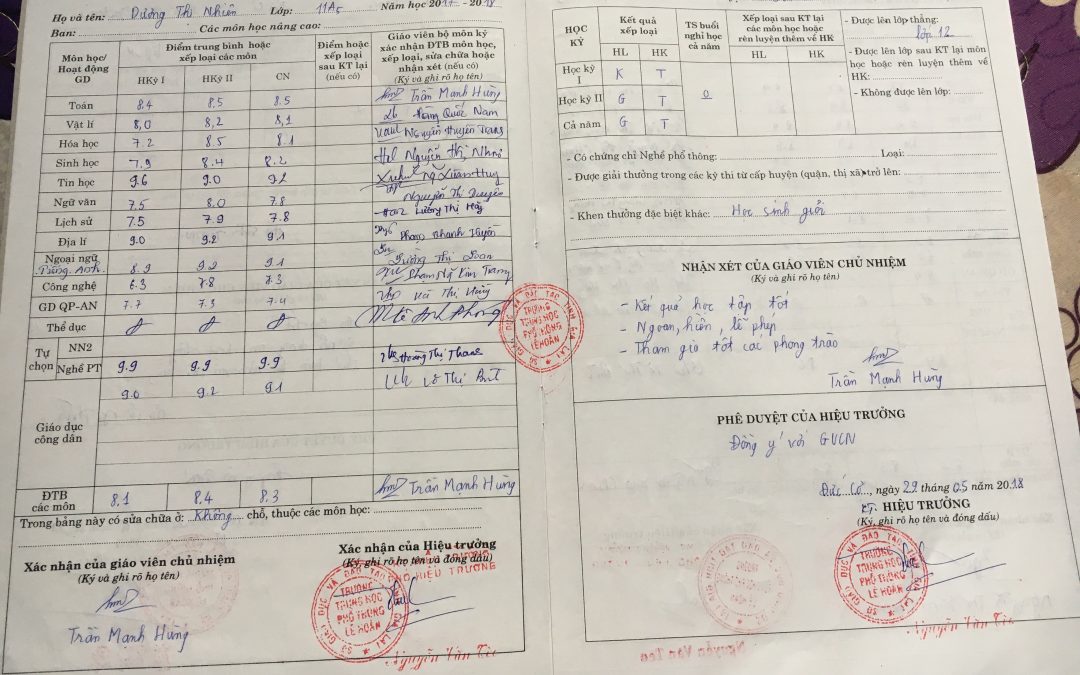 Họ và tên: Dương Thị Nhiên Lớp: 11A5 Năm học 2017 - 2018
Ban: Các môn học nâng cao:
Môn học/ Hoạt động GD
Điểm trung bình hoặc xếp loại các môn
HKỳ I HKỳ II CN
Điểm hoặc xếp loại sau KT lại (nếu có)
Giáo viên bộ môn ký xác nhận ĐTB môn học, xếp loại, sửa chữa hoặc nhận xét (nếu có)
(Ký và ghi rõ họ tên)
Toán 8,4 8,5 8.5 Trần Mạnh Hùng
Vật lí 8,0 8,2 8,1 Quốc Nam
Hóa học 7.2 8.5 8.1 Nguyễn Huyền Trang
Sinh học 7,9 8.4 8.2 Nguyễn Thị
Tin học 9.6 9.0 9.2 Ng Xuân Huy
Ngữ văn 7.5 8.0 7.8 Nguyễn Thị Duyên
Lịch sử 7.5 7.9 7.8 Lương Thị
Địa lí 9.0 9.2 9.1 Phạm Khanh Huyền
Ngoại ngữ Tiếng Anh 8.9 9.2 9.1 Thị Loan
Công nghệ 6.3 7.8 7.3 Phạm Thị Kim Trang
GD QP-AN 7.7 7.3 7.4 Thị
Thể dục Anh Phong
Tự chọn NN2
Nghề PT 9.9 9.9 9.9 Hoàng Thị Thanh
Giáo dục công dân 9.0 9.2 9.1 Thị
ĐTB các môn 8,1 8,4 8.3 Trần Mạnh Hùng
Trong bảng này có sửa chữa ở: Không chỗ, thuộc các môn học:
Xác nhận của giáo viên chủ nhiệm
(Ký và ghi rõ họ tên)
Trần Mạnh Hùng
Xác nhận của Hiệu trưởng
(Ký, ghi rõ họ tên và đóng dấu)
HIỆU TRƯỞNG
SỞ GIÁO DỤC VÀ ĐÀO TẠO TỈNH GIA LAI
TRƯỜNG
TRUNG HỌC
PHỔ THÔNG
LÊ HOÀN
Nguyễn Văn
HỌC KỲ
Kết quả xếp loại
HL HK
TS buổi nghỉ học cả năm
Xếp loại sau KT lại các môn học hoặc rèn luyện thêm về HK
HL HK
Học kỳ I K T
Học kỳ II G T 0
Cả năm G T
- Được lên lớp thẳng: lớp 12
- Được lên lớp sau KT lại môn học hoặc rèn luyện thêm về HK:
- Không được lên lớp:
- Có chứng chỉ Nghề phổ thông: Loại:
- Được giải thưởng trong các kỳ thi từ cấp huyện (quận, thị xã) trở lên:
- Khen thưởng đặc biệt khác: Học sinh giỏi
NHẬN XÉT CỦA GIÁO VIÊN CHỦ NHIỆM
(Ký và ghi rõ họ tên)
- Kết quả học tập tốt
- Ngoan, hiền, lễ phép
- Tham gia tốt các phong trào
Trần Mạnh Hùng
SỞ GIÁO DỤC VÀ ĐÀO TẠO TỈNH GIA LAI
TRƯỜNG
TRUNG HỌC
PHỔ THÔNG
LÊ HOÀN
PHÊ DUYỆT CỦA HIỆU TRƯỞNG
Đồng ý với GVCN
Đức Cơ, ngày 29 tháng 05 năm 2018
KT. HIỆU TRƯỞNG
(Ký, ghi rõ họ tên và đóng dấu)
SỞ GIÁO DỤC VÀ ĐÀO TẠO TỈNH GIA LAI
TRƯỜNG
TRUNG HỌC
PHỔ THÔNG
LÊ HOÀN
Nguyễn Văn